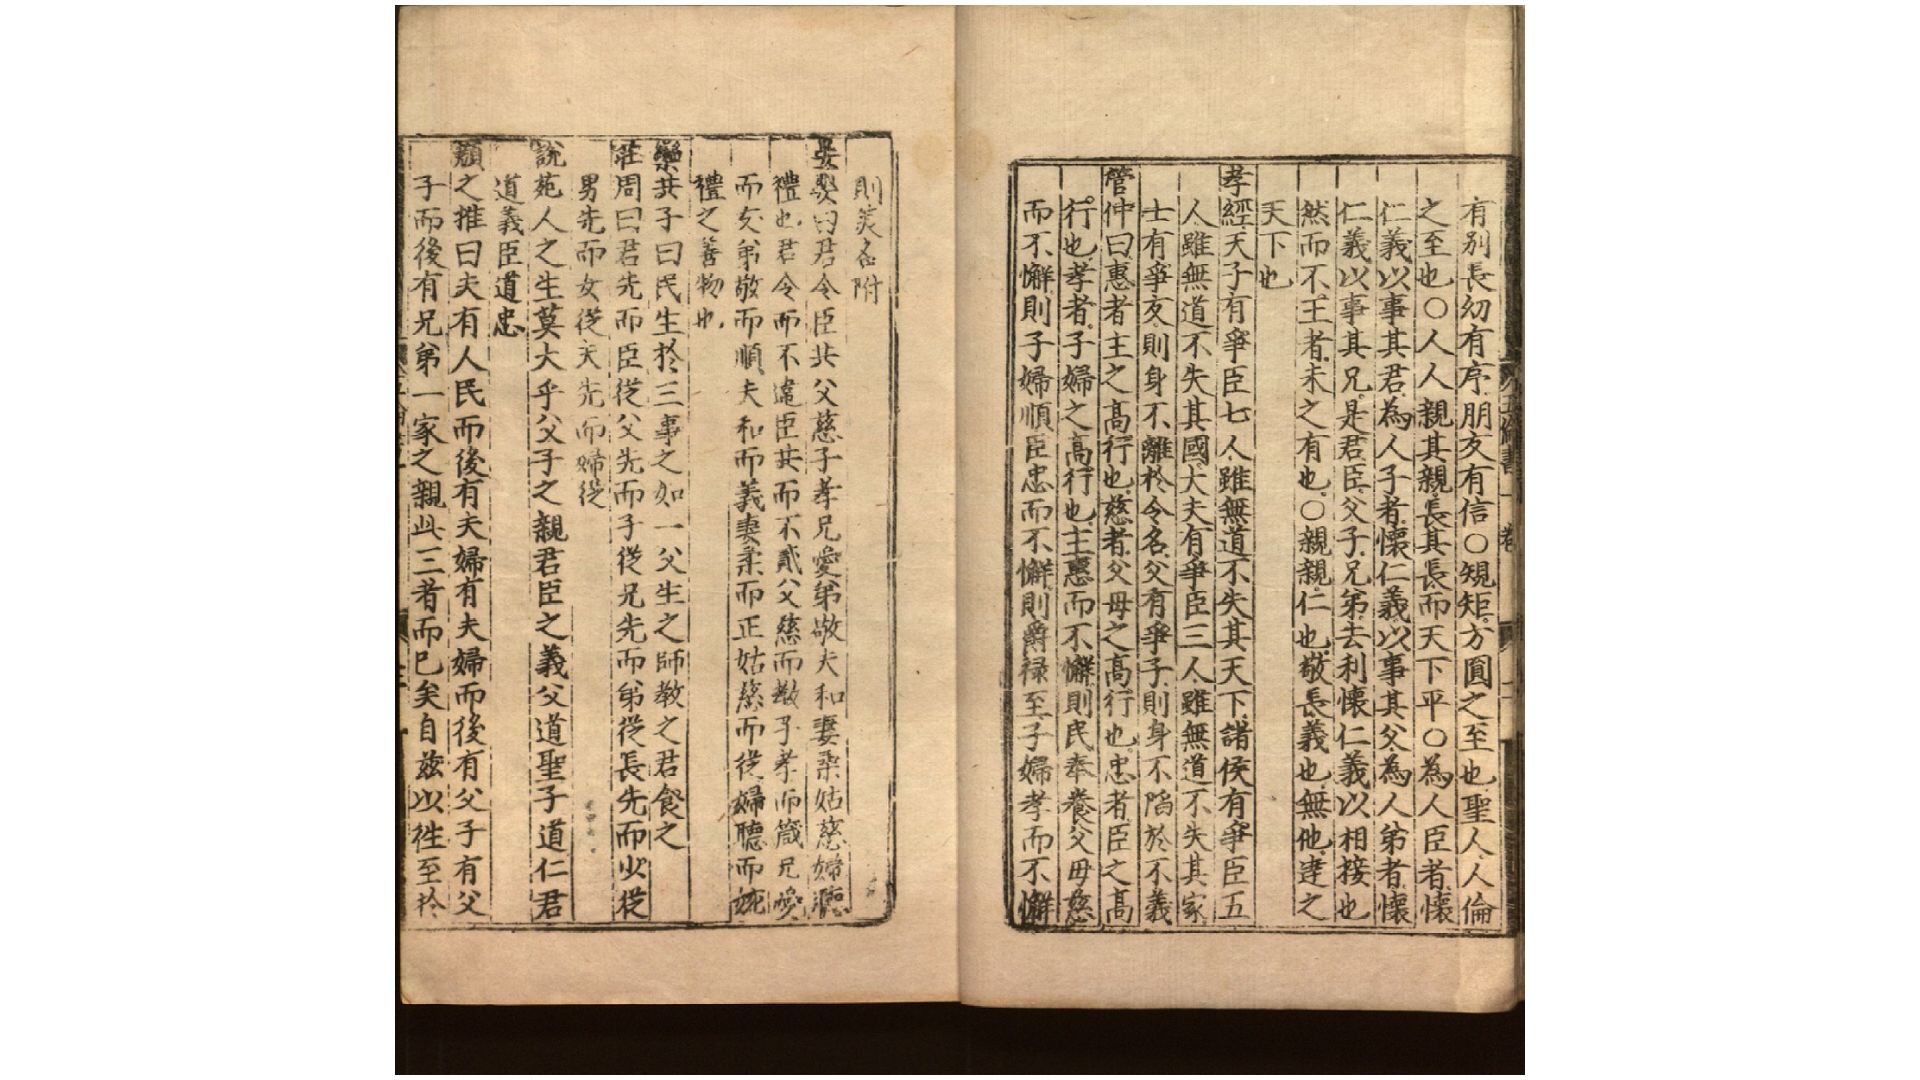 有別長幼有序朋友有信○規矩方圓之至也聖人人倫
之至也○人人親其親長其長而天下平○為人臣者懷
仁義以事其君為人子者懷仁義以事其父為人弟者懷
仁義以事其兄是君臣父子兄弟去利懷仁義以相接也
然而不王者未之有也○親親仁也敬長義也無他達之
天下也
孝經天子有爭臣七人雖無道不失其天下諸侯有爭臣五
人雖無道不失其國大夫有爭臣三人雖無道不失其家
士有爭友則身不離於令名父有爭子則身不陷於不義
管仲曰惠者主之高行也慈者父母之高行也忠者臣之高
行也孝者子婦之高行也主惠而不懈則民奉養父母慈
而不懈則子婦順臣忠而不懈則爵祿至子婦孝而不懈
則美名附
晏嬰曰君令臣共父慈子孝兄愛弟敬夫和妻柔姑慈婦聽
禮也君令而不違臣共而不貳父慈而敎子孝而箴兄愛
而友弟敬而順夫和而義妻柔而正姑慈而從婦聽而婉
禮之善物也
欒共子曰民生於三事之如一父生之師敎之君食之
莊周曰君先而臣從父先而子從兄先而弟從長先而少從
男先而女從夫先而婦從
說苑人之生莫大乎父子之親君臣之義父道聖子道仁君
道義臣道忠
顏之推曰夫有人民而後有夫婦有夫婦而後有父子有父
子而後有兄弟一家之親此三者而已矣自玆以往至於